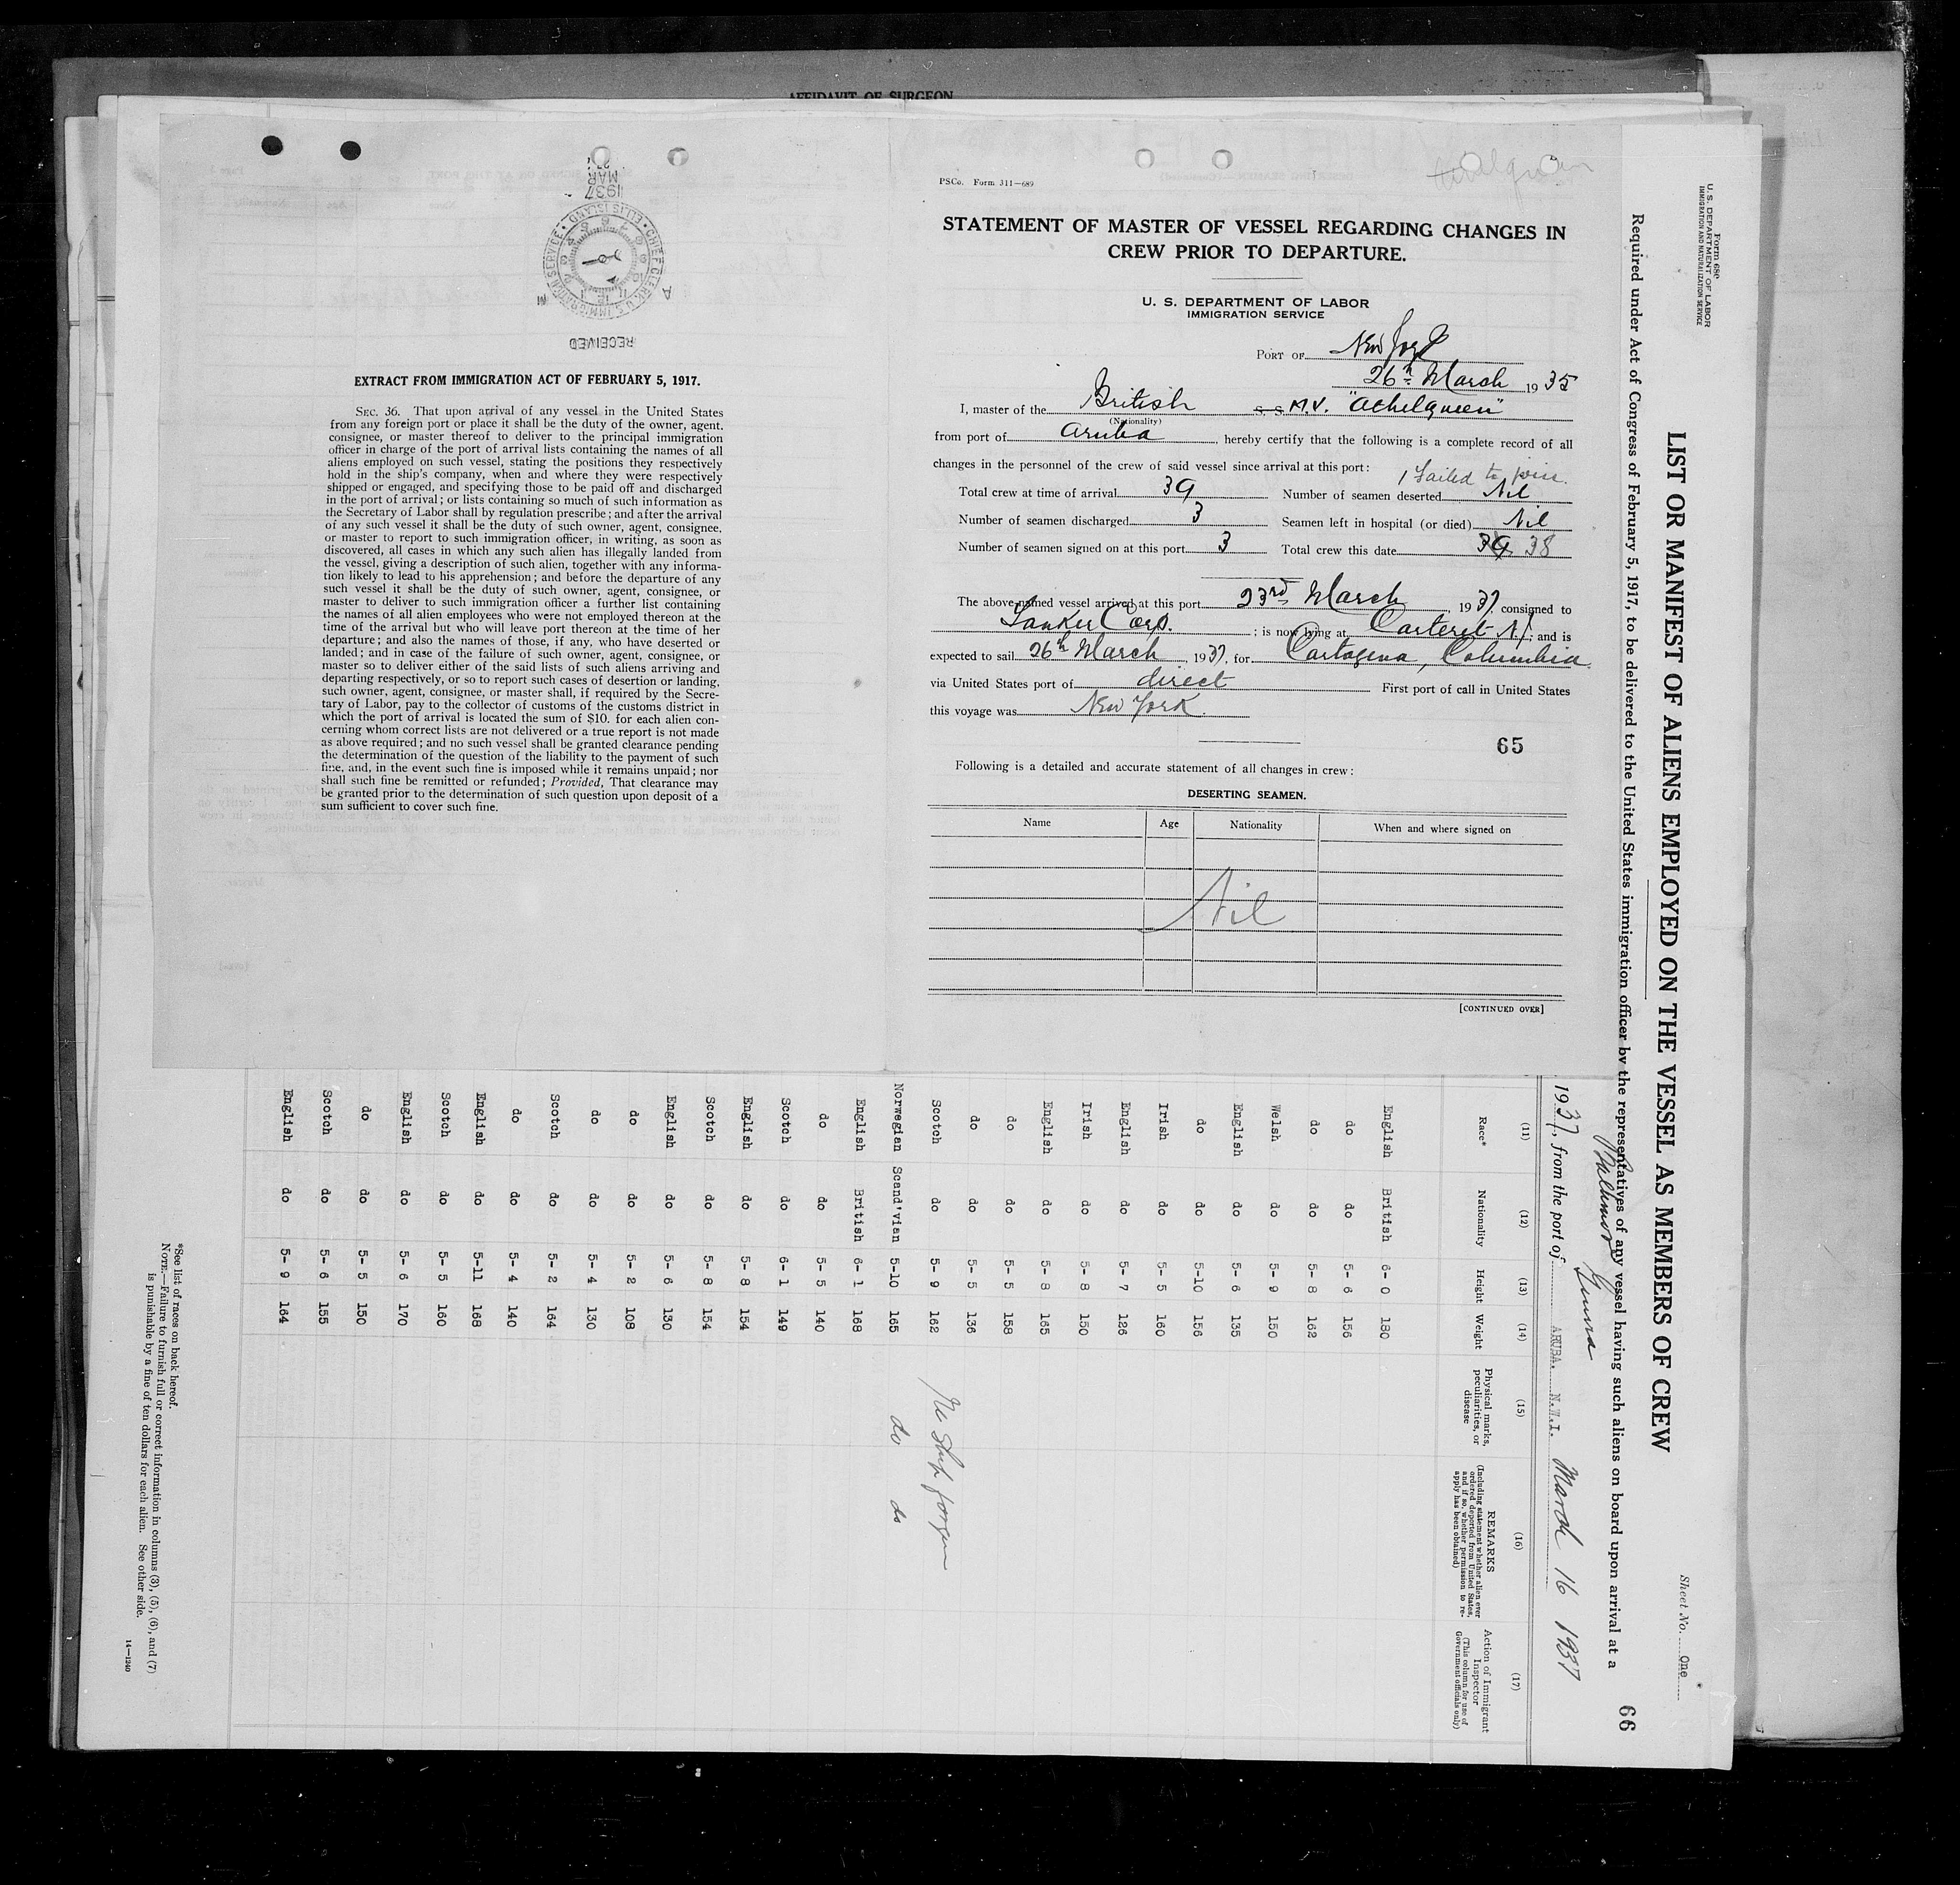 AFFIDAVIT OF SURGEON
MAR
1937
CHIEF CLERK, U.S. IMMIGRATION SERVICE • ELLIS ISLAND •
A M
RECEIVED
EXTRACT FROM IMMIGRATION ACT OF FEBRUARY 5, 1917.
SEC. 36. That upon arrival of any vessel in the United States
from any foreign port or place it shall be the duty of the owner, agent,
consignee, or master thereof to deliver to the principal immigration
officer in charge of the port of arrival lists containing the names of all
aliens employed on such vessel, stating the positions they respectively
hold in the ship's company, when and where they were respectively
shipped or engaged, and specifying those to be paid off and discharged
in the port of arrival; or lists containing so much of such information as
the Secretary of Labor shall by regulation prescribe; and after the arrival
of any such vessel it shall be the duty of such owner, agent, consignee,
or master to report to such immigration officer, in writing, as soon as
discovered, all cases in which any such alien has illegally landed from
the vessel, giving a description of such alien, together with any informa-
tion likely to lead to his apprehension; and before the departure of any
such vessel it shall be the duty of such owner, agent, consignee, or
master to deliver to such immigration officer a further list containing
the names of all alien employees who were not employed thereon at the
time of the arrival but who will leave port thereon at the time of her
departure; and also the names of those, if any, who have deserted or
landed; and in case of the failure of such owner, agent, consignee, or
master so to deliver either of the said lists of such aliens arriving and
departing respectively, or so to report such cases of desertion or landing,
such owner, agent, consignee, or master shall, if required by the Secre-
tary of Labor, pay to the collector of customs of the customs district in
which the port of arrival is located the sum of $10. for each alien con-
cerning whom correct lists are not delivered or a true report is not made
as above required; and no such vessel shall be granted clearance pending
the determination of the question of the liability to the payment of such
fine, and, in the event such fine is imposed while it remains unpaid; nor
shall such fine be remitted or refunded; Provided, That clearance may
be granted prior to the determination of such question upon deposit of a
sum sufficient to cover such fine.
PSCo. Form 311—689
STATEMENT OF MASTER OF VESSEL REGARDING CHANGES IN
CREW PRIOR TO DEPARTURE.
U. S. DEPARTMENT OF LABOR
IMMIGRATION SERVICE
PORT OF New York
26th March 1935
I, master of the British S. S. M.V. "Athelqueen"
(Nationality)
from port of Aruba, hereby certify that the following is a complete record of all
changes in the personnel of the crew of said vessel since arrival at this port:
1 failed to join.
Total crew at time of arrival 39 Number of seamen deserted Nil
Number of seamen discharged 3 Seamen left in hospital (or died) Nil
Number of seamen signed on at this port 3 Total crew this date 39 38
The above-named vessel arrived at this port 23rd March, 1937, consigned to
Tanker Corp.; is now lying at Carteret N.J.; and is
expected to sail 26th March, 1937, for Cartagena, Columbia
via United States port of direct First port of call in United States
this voyage was New York.
65
Following is a detailed and accurate statement of all changes in crew:
DESERTING SEAMEN.
Name Age Nationality When and where signed on
Nil
[CONTINUED OVER]
Form 680
U. S. DEPARTMENT OF LABOR
IMMIGRATION AND NATURALIZATION SERVICE
Sheet No. One
LIST OR MANIFEST OF ALIENS EMPLOYED ON THE VESSEL AS MEMBERS OF CREW
66
Required under Act of Congress of February 5, 1917, to be delivered to the United States immigration officer by the representatives of any vessel having such aliens on board upon arrival at a
1937, from the port of ARUBA. N.W.I. March 16 1937
(11) (12) (13) (14) (15) (16) (17)
Race* Nationality Height Weight Physical marks, peculiarities, or disease
REMARKS
(Including statement whether alien ever ordered deported from United States, and if so, whether permission to re-apply has been obtained)
Action of Immigrant Inspector
(This column for use of Government officials only)
English British 6- 0 180
do do 5- 6 156
do do 5- 8 162
Welsh do 5- 9 150
English do 5- 6 135
do do 5-10 156
Irish do 5- 5 160
English do 5- 7 126
Irish do 5- 8 150
English do 5- 8 165
do do 5- 5 158
do do 5- 5 136
Scotch do 5- 9 162
Norwegian Scand'vian 5-10 165 do do
English British 6- 1 168
do do 5- 5 140
Scotch do 6- 1 149
English do 5- 8 154
Scotch do 5- 8 154
English do 5- 6 130
do do 5- 2 108
do do 5- 4 130
Scotch do 5- 2 164
do do 5- 4 140
English do 5-11 168
Scotch do 5- 5 160
English do 5- 6 170
do do 5- 5 150
Scotch do 5- 6 155
English do 5- 9 164
*See list of races on back hereof.
NOTE.—Failure to furnish full or correct information in columns (3), (5), (6), and (7)
is punishable by a fine of ten dollars for each alien. See other side.
14—1240